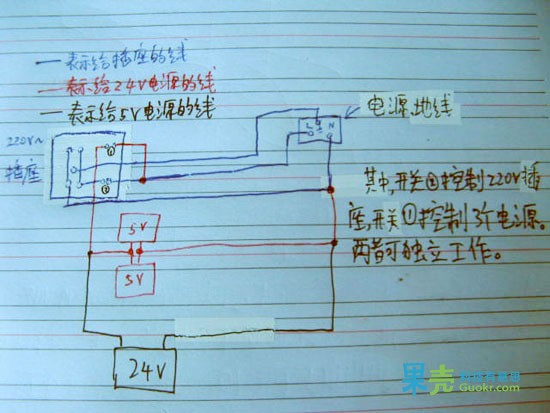 —表示给插座的线
—表示给24V电源的线
—表示给5V电源的线
220V~
插座
L N
电源地线
其中,开关②控制220V插
座,开关①控制3个电源。
两者可独立工作。
5V
5V
24V
果壳
Guokr.com